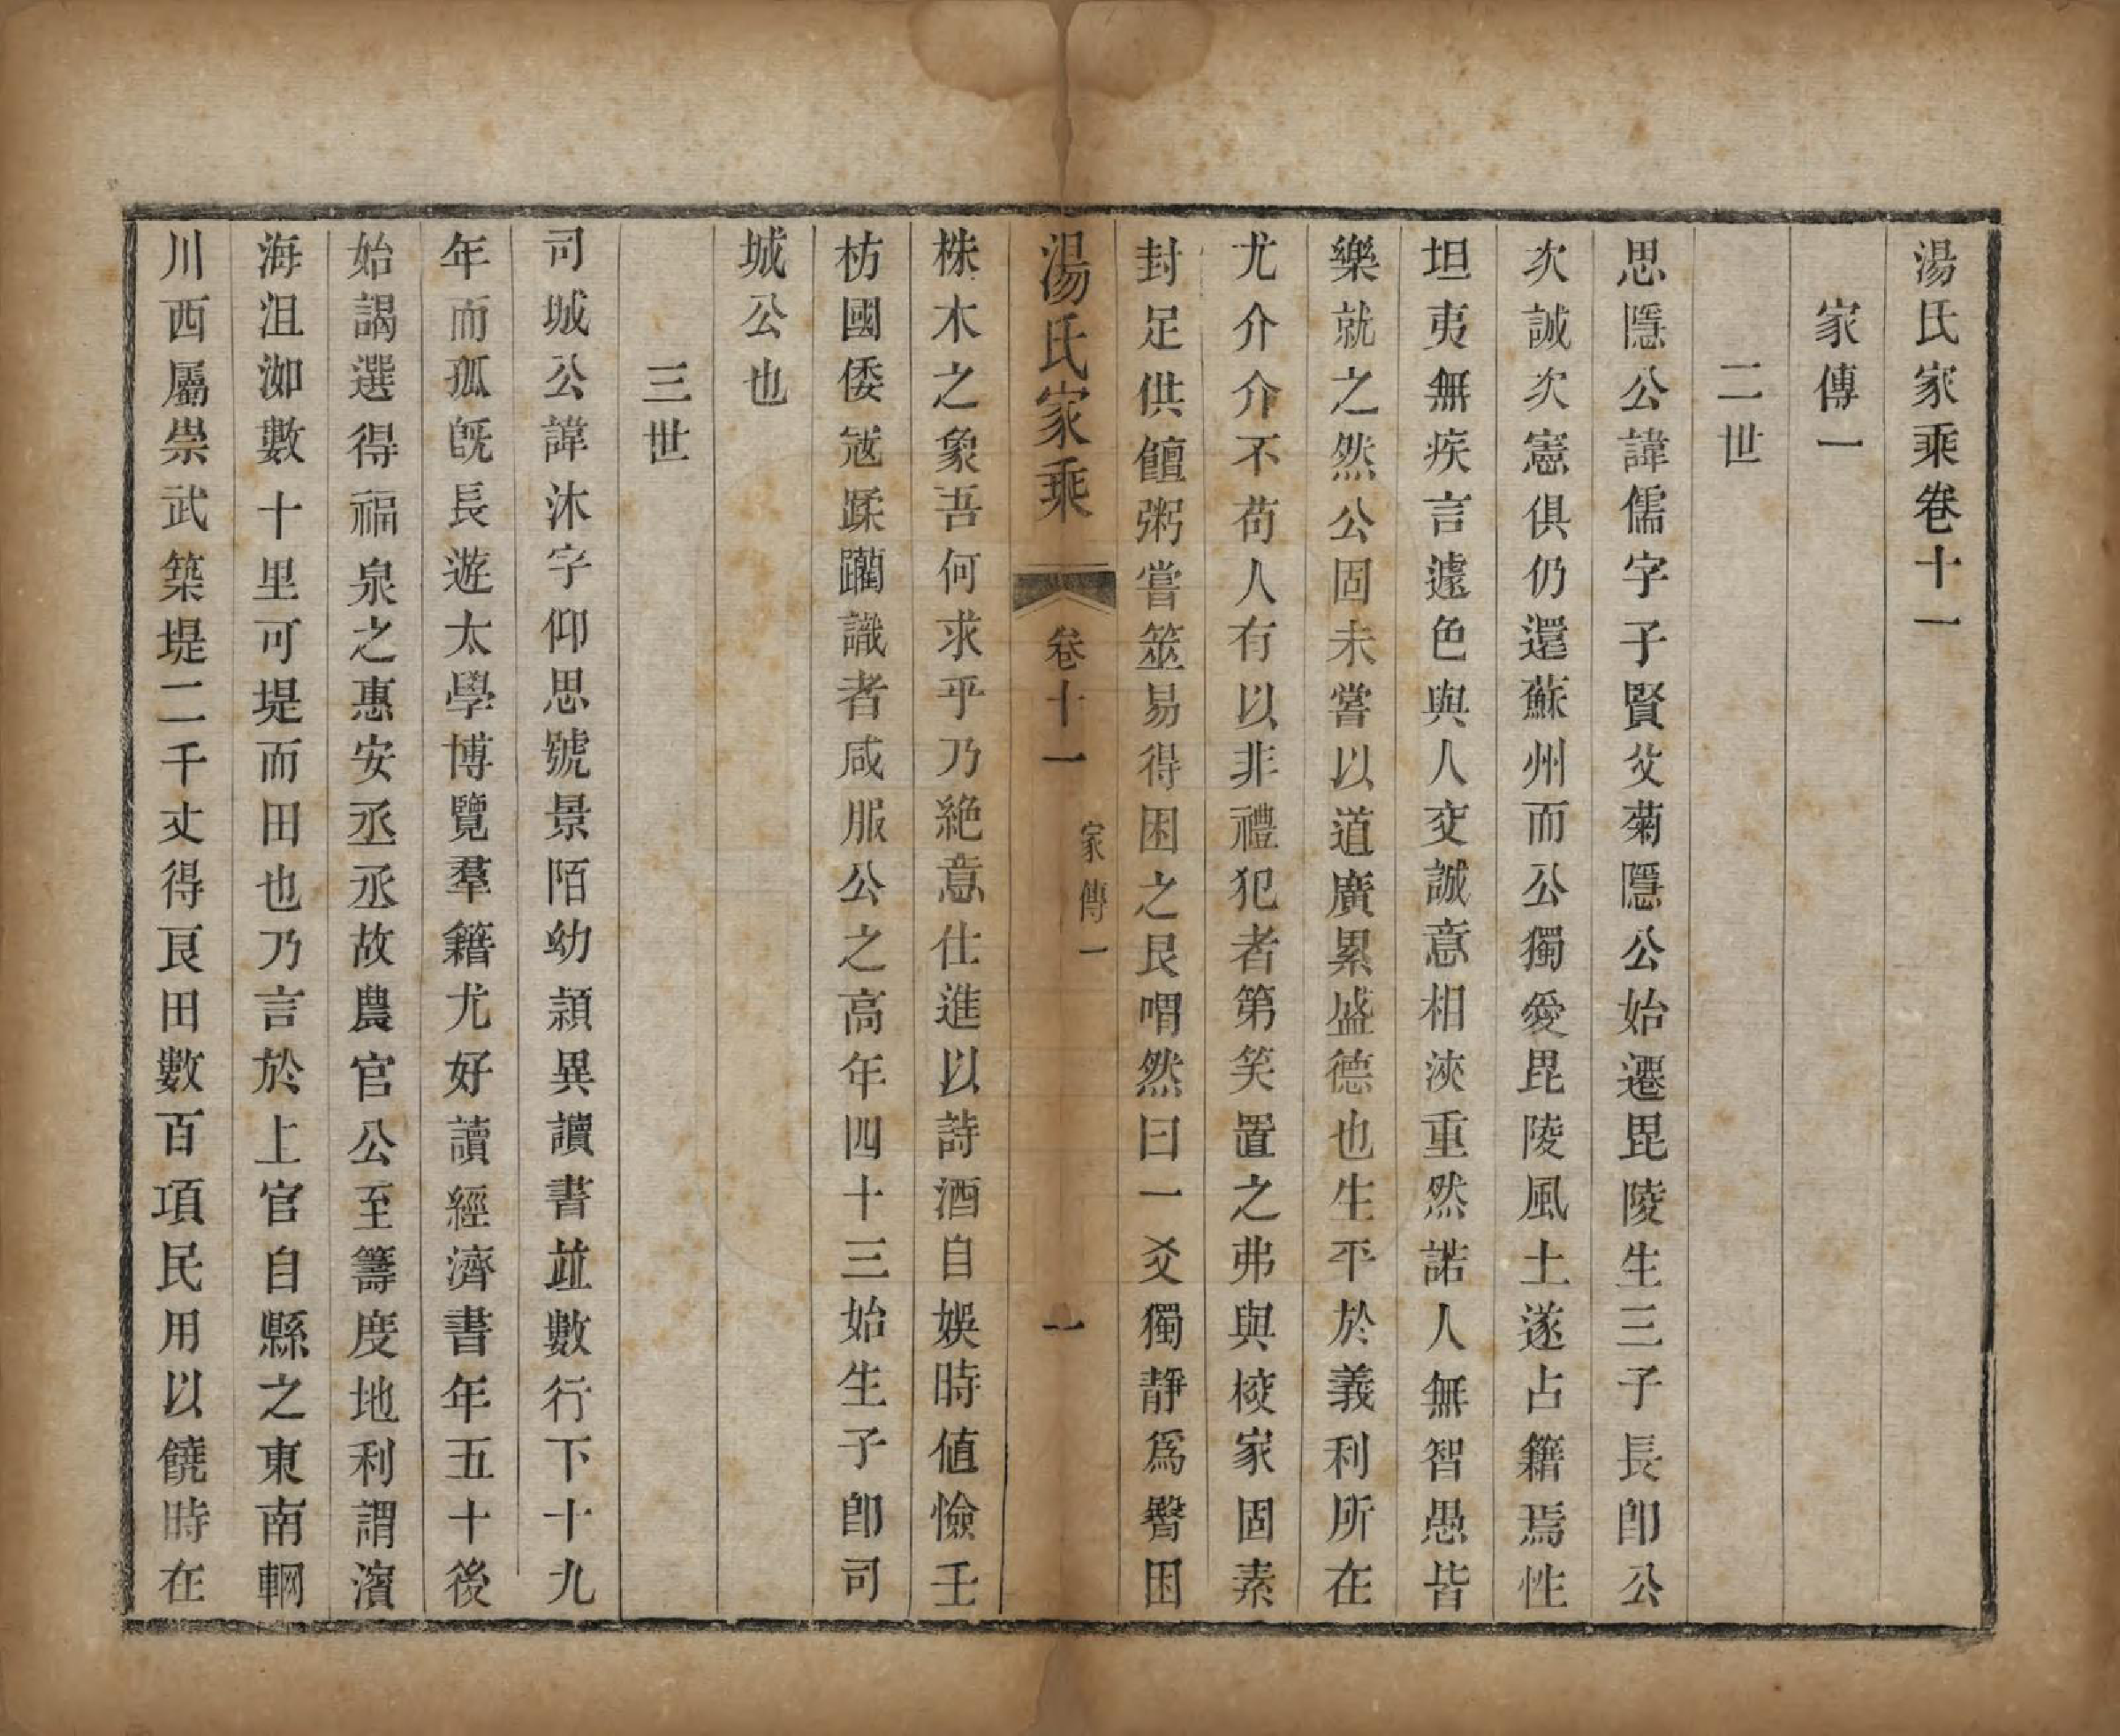 湯氏家乘卷十一
家傳一
二世
思隱公諱儒字子賢父菊隱公始遷毘陵生三子長卽公
次誠次憲俱仍還蘇州而公獨愛毘陵風土遂占籍焉性
坦夷無疾言遽色與人交誠意相浹重然諾人無智愚皆
樂就之然公固未嘗以道廣累盛德也生平於義利所在
尤介介不苟人有以非禮犯者第笑置之弗與校家固素
封足供饘粥嘗筮易得困之艮喟然曰一爻獨靜爲臀困
湯氏家乘
卷十一
家傳一
一
株木之象吾何求乎乃絶意仕進以詩酒自娛時値憸壬
枋國倭寇蹂躪識者咸服公之高年四十三始生子卽司
城公也
三世
司城公諱沐字仰思號景陌幼頴異讀書竝數行下十九
年而孤旣長遊太學博覽羣籍尤好讀經濟書年五十後
始謁選得福泉之惠安丞丞故農官公至籌度地利謂濱
海沮洳數十里可堤而田也乃言於上官自縣之東南輞
川西屬崇武築堤二千丈得良田數百項民用以饒時在